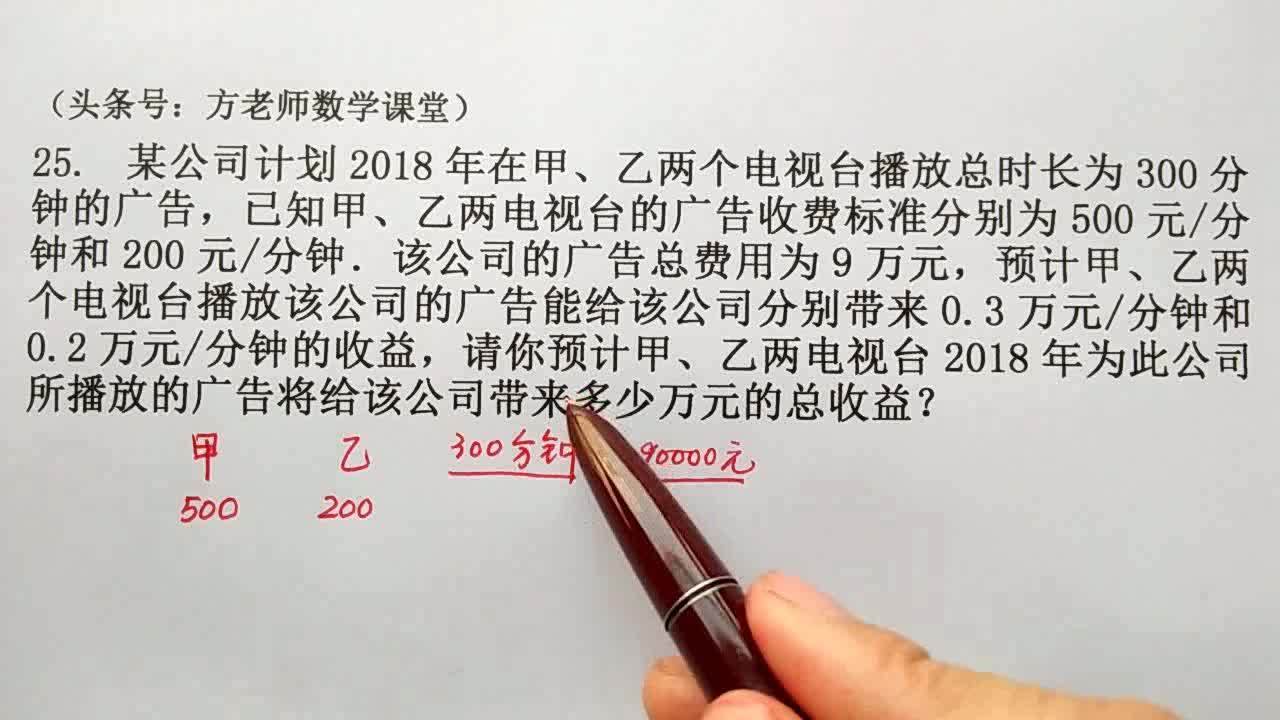 （头条号：方老师数学课堂）
25. 某公司计划 2018 年在甲、乙两个电视台播放总时长为 300 分
钟的广告，已知甲、乙两电视台的广告收费标准分别为 500 元/分
钟和 200 元/分钟．该公司的广告总费用为 9 万元，预计甲、乙两
个电视台播放该公司的广告能给该公司分别带来 0.3 万元/分钟和
0.2 万元/分钟的收益，请你预计甲、乙两电视台 2018 年为此公司
所播放的广告将给该公司带来多少万元的总收益？
甲 乙 300分钟 90000元
500 200